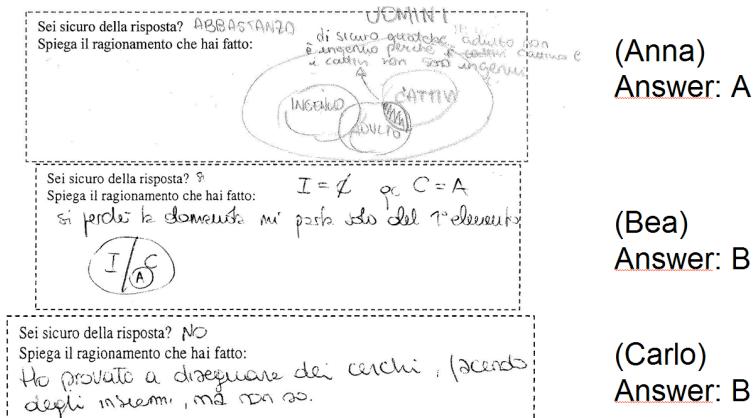 Sei sicuro della risposta? ABBASTANZA
Spiega il ragionamento che hai fatto:
UOMINI
di sicuro qualche adulto non
è ingenuo perché è cattivo e
i cattivi non sono ingenui
INGENUO
CATTIVI
ADULTO
(Anna)
Answer: A
Sei sicuro della risposta? Sì
Spiega il ragionamento che hai fatto:
C = A
si perché la domanda mi parla solo del 1° elemento
I / C
A
(Bea)
Answer: B
Sei sicuro della risposta? NO
Spiega il ragionamento che hai fatto:
Ho provato a disegnare dei cerchi, facendo
degli insiemi, ma non so.
(Carlo)
Answer: B